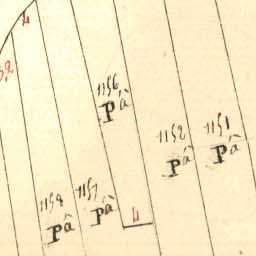 4
32
1156
Pâ
1152
Pâ
1151
Pâ
1157
Pâ
1158
Pâ
4